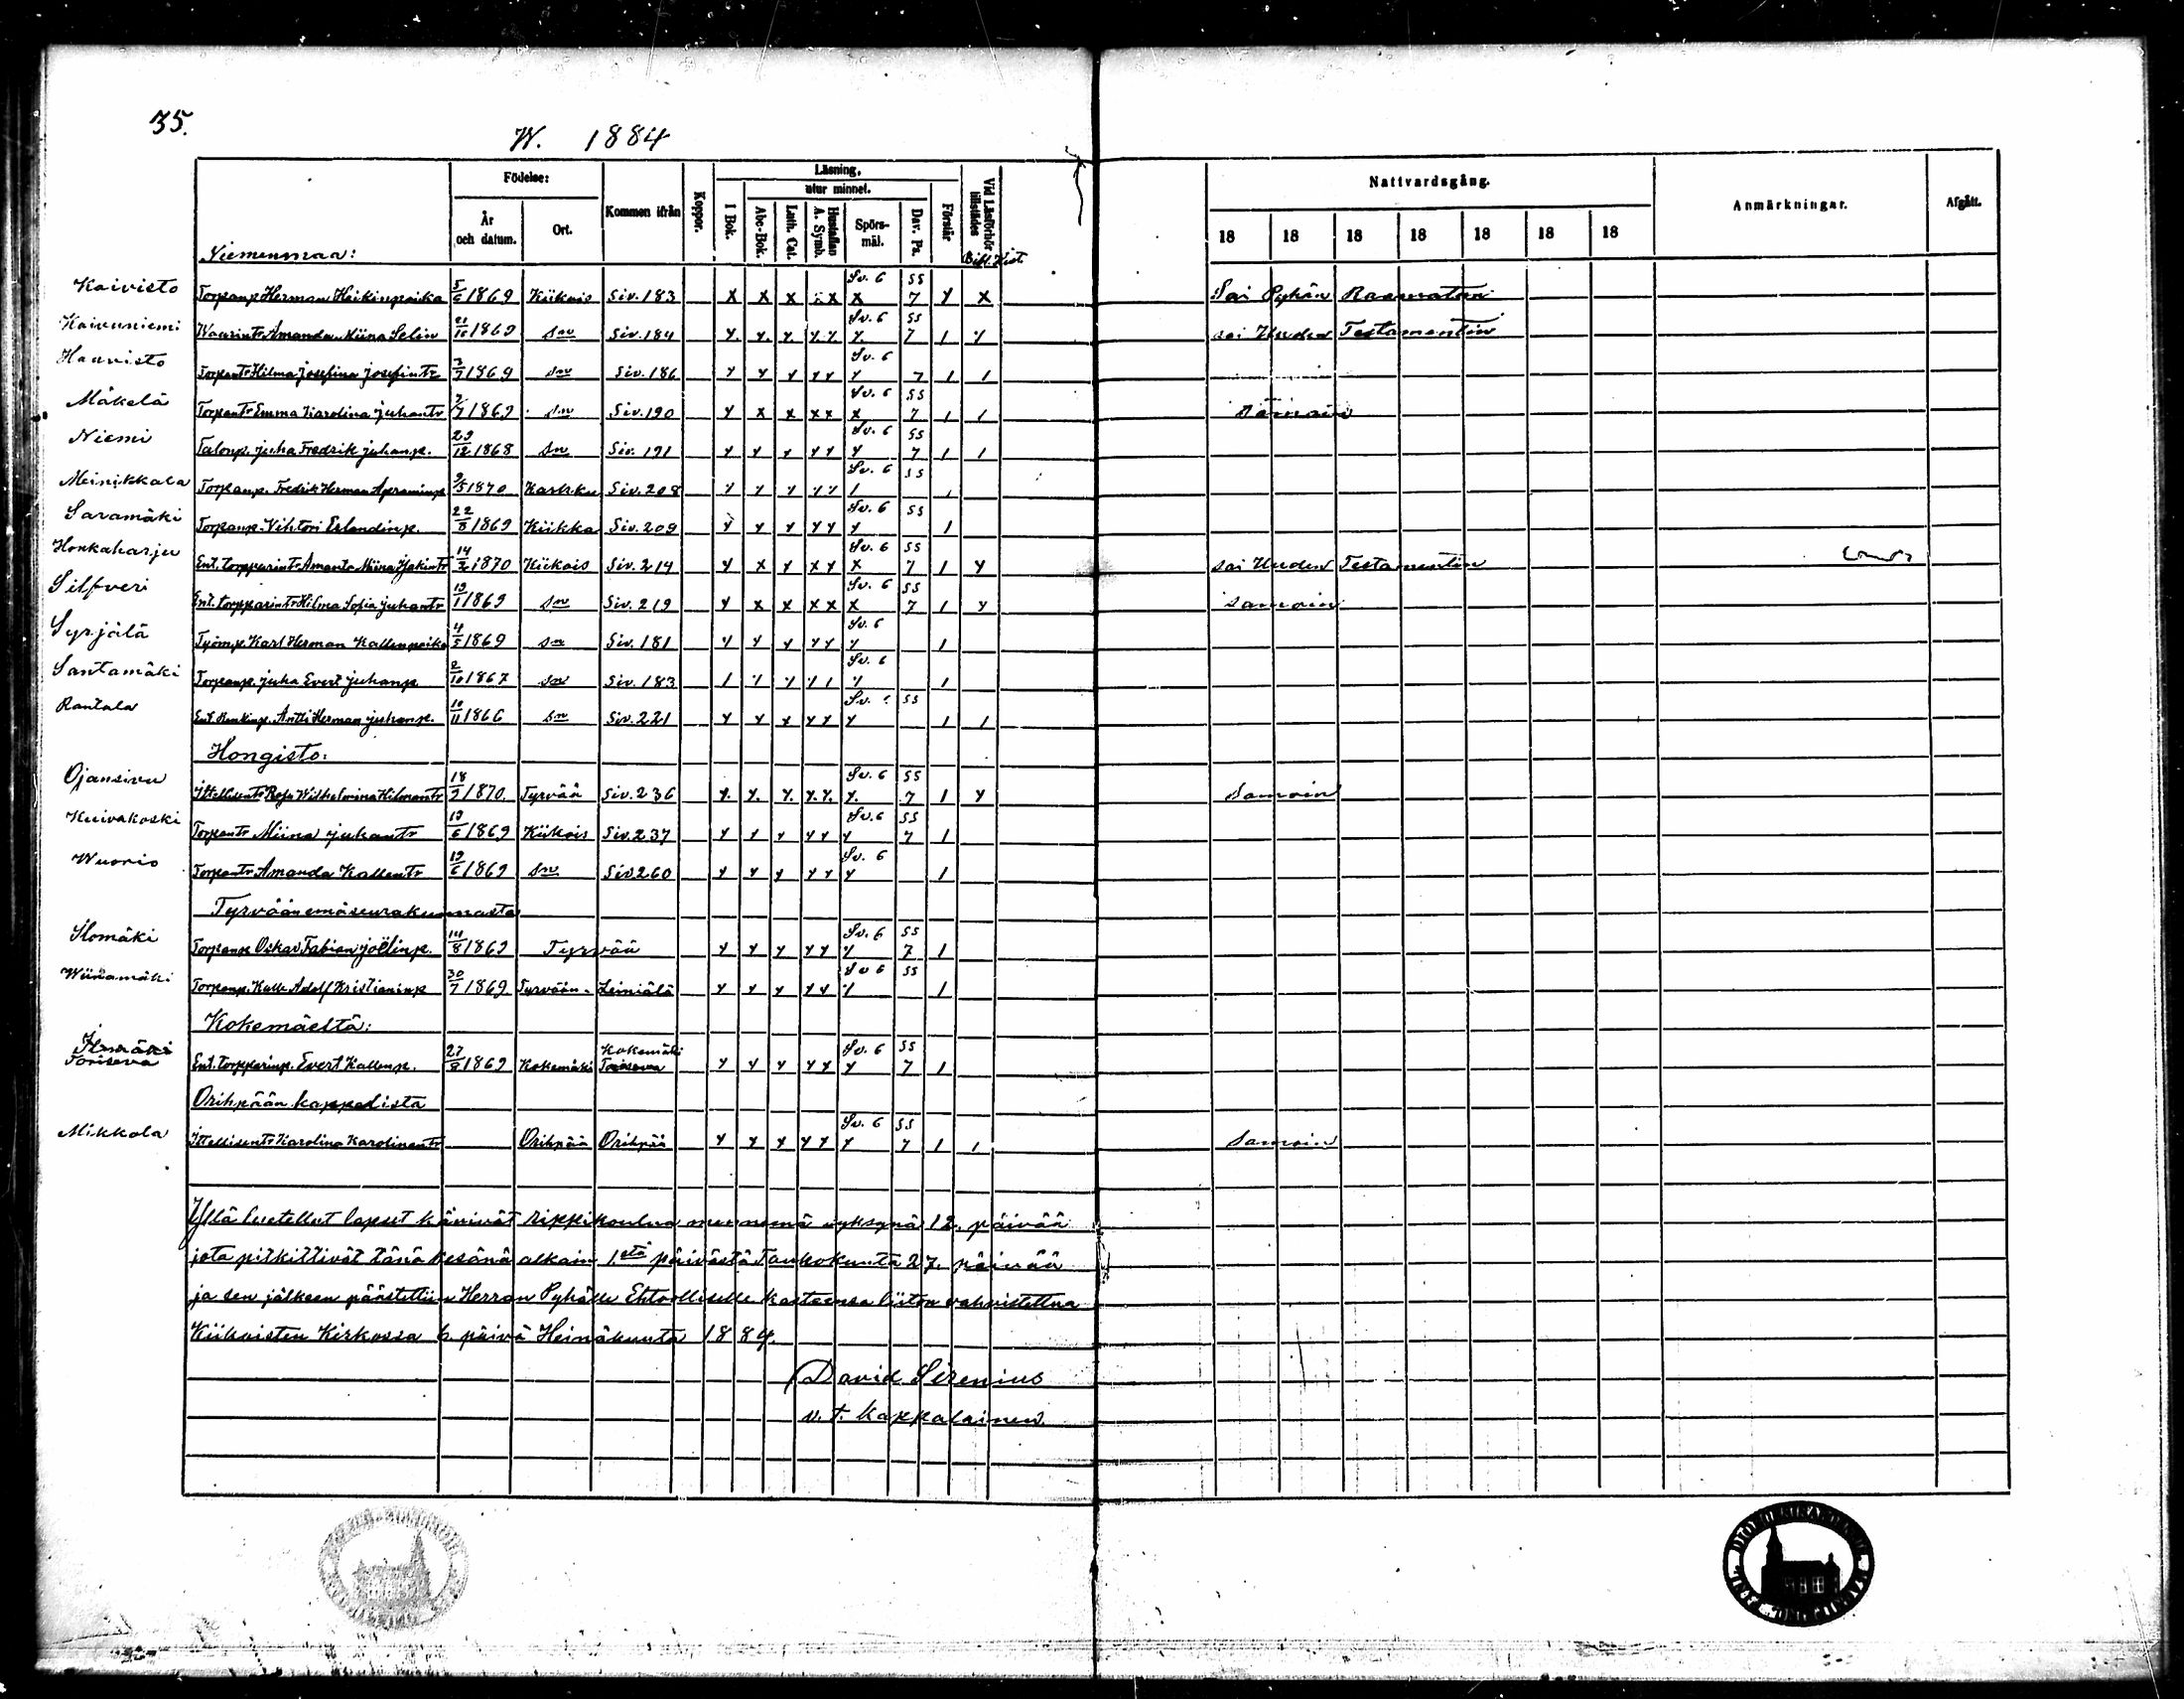 35.
W. 1884
Födelse:
Läsning,
utur minnet.
År och datum.
Ort.
Kommen ifrån
Koppor.
I Bok.
Abc-Bok.
Luth. Cat.
Hustaflan A. Symb.
Spörs-mål.
Dav. Ps.
Förstår
Vid Läsförhör tillstädes
Bibl. Hist.
Nattvardsgång.
18 18 18 18 18 18 18
Anmärkningar.
Afgått.
Niemenmaa:
Kaivisto Torpanp. Herman Heikinpoika 5/6 1869 Kiikois Siv. 183 x x x x x Sv. 6 x SS 7 y x Sai Pyhän Raamatun
Koivuniemi Amanda Miina Selin 21/10 1869 sn Siv. 184 y. y. y. y. y. Sv. 6 y. SS 7 1 y sai Uuden Testamentin
Haavisto Torpantr Hilma Josefina Josefintr 3/7 1869 sn Siv. 186 y y y y y Sv. 6 y 7 1 1
Mäkelä Torpantr Emma Karolina Juhantr 3/7 1869 sn Siv. 190 y x x x x Sv. 6 x SS 7 1 1 samoin
Niemi Talonp. Juha Fredrik Juhanp. 29/12 1868 sn Siv. 191 y y y y y Sv. 6 y SS 7 1 1
Meinikkala Torpanp. Fredrik Herman Apraminp 9/5 1870 Karkku Siv. 208 y y y y y Sv. 6 1 SS 1
Saramäki Torpanp. Vihtori Erlandinp. 22/8 1869 Kiikka Siv. 209 y y y y y Sv. 6 y SS 1
Honkaharju Ent. torpparintr Amanta Miina 14/2 1870 Kiikois Siv. 214 y x y x x Sv. 6 x SS 7 1 y sai Uuden Testamentin
Silfveri Ent. torpparintr Hilma Sofia Juhantr 19/1 1869 sn Siv. 219 y x x x x Sv. 6 x SS 7 1 y samoin
Syrjälä Työmp. Karl Herman Kallenpoika 4/5 1869 sn Siv. 181 y y y y y Sv. 6 y 1
Santamäki Torpanp. Juha Evert Juhanp 2/10 1867 sn Siv. 183 1 y y y 1 Sv. 6 y 1
Rantala Antti Herman Juhanp. 10/11 1866 sn Siv. 221 y y y y y Sv. 6 y SS 1 1
Hongisto:
Ojansivu Ittellisentr Rosa Wilhelmina Hilmantr 18/9 1870. Tyrvää Siv. 236 y. y. y. y. y. Sv. 6 y. SS 7 1 y Samoin
Kuivakoski Torpantr Miina Juhantr 19/6 1869 Kiikois Siv. 237 y y y y y Sv. 6 y SS 7 1
Wuorio Torpantr Amanda Kallentr 19/6 1869 sn Siv 260 y y y y y Sv. 6 y 1
Tyrvään emäseurakunnasta
Ilomäki Torpanp Oskar Fabian Joëlinp. 14/8 1869 Tyrvää y y y y y Sv. 6 y SS 7 1
Torpanp. Kalle Adolf Kristianinp 30/7 1869 Tyrvään- Leiniälä y y y y y Sv 6 y SS 1
Kokemäeltä:
Ilmäki
Toriseva Ent. torpparinp. Evert Kallenp. 27/8 1869 Kokemäki Kokemäki Toriseva y y y y y Sv. 6 y SS 7 1
Orihpään kappelista
Mikkola Ittellisentr Karolina Karolinantr Orihpää Orihpää y y y y y Sv. 6 y SS 7 1 1 Samoin
Yllä luetellut lapset kävivät rippikoulua mennenä syksynä 12. päivää
jota pitkittivät tänä kesänä alkain 1.stä päivästä Toukokuuta 27. päivää
ja sen jälkeen päästettiin Herran Pyhälle Ehtoolliselle kasteensa liiton vahvistettua
Kiikoisten Kirkossa 6. päivä Heinäkuuta 1884.
David Sirenius
v. t. kappalainen.